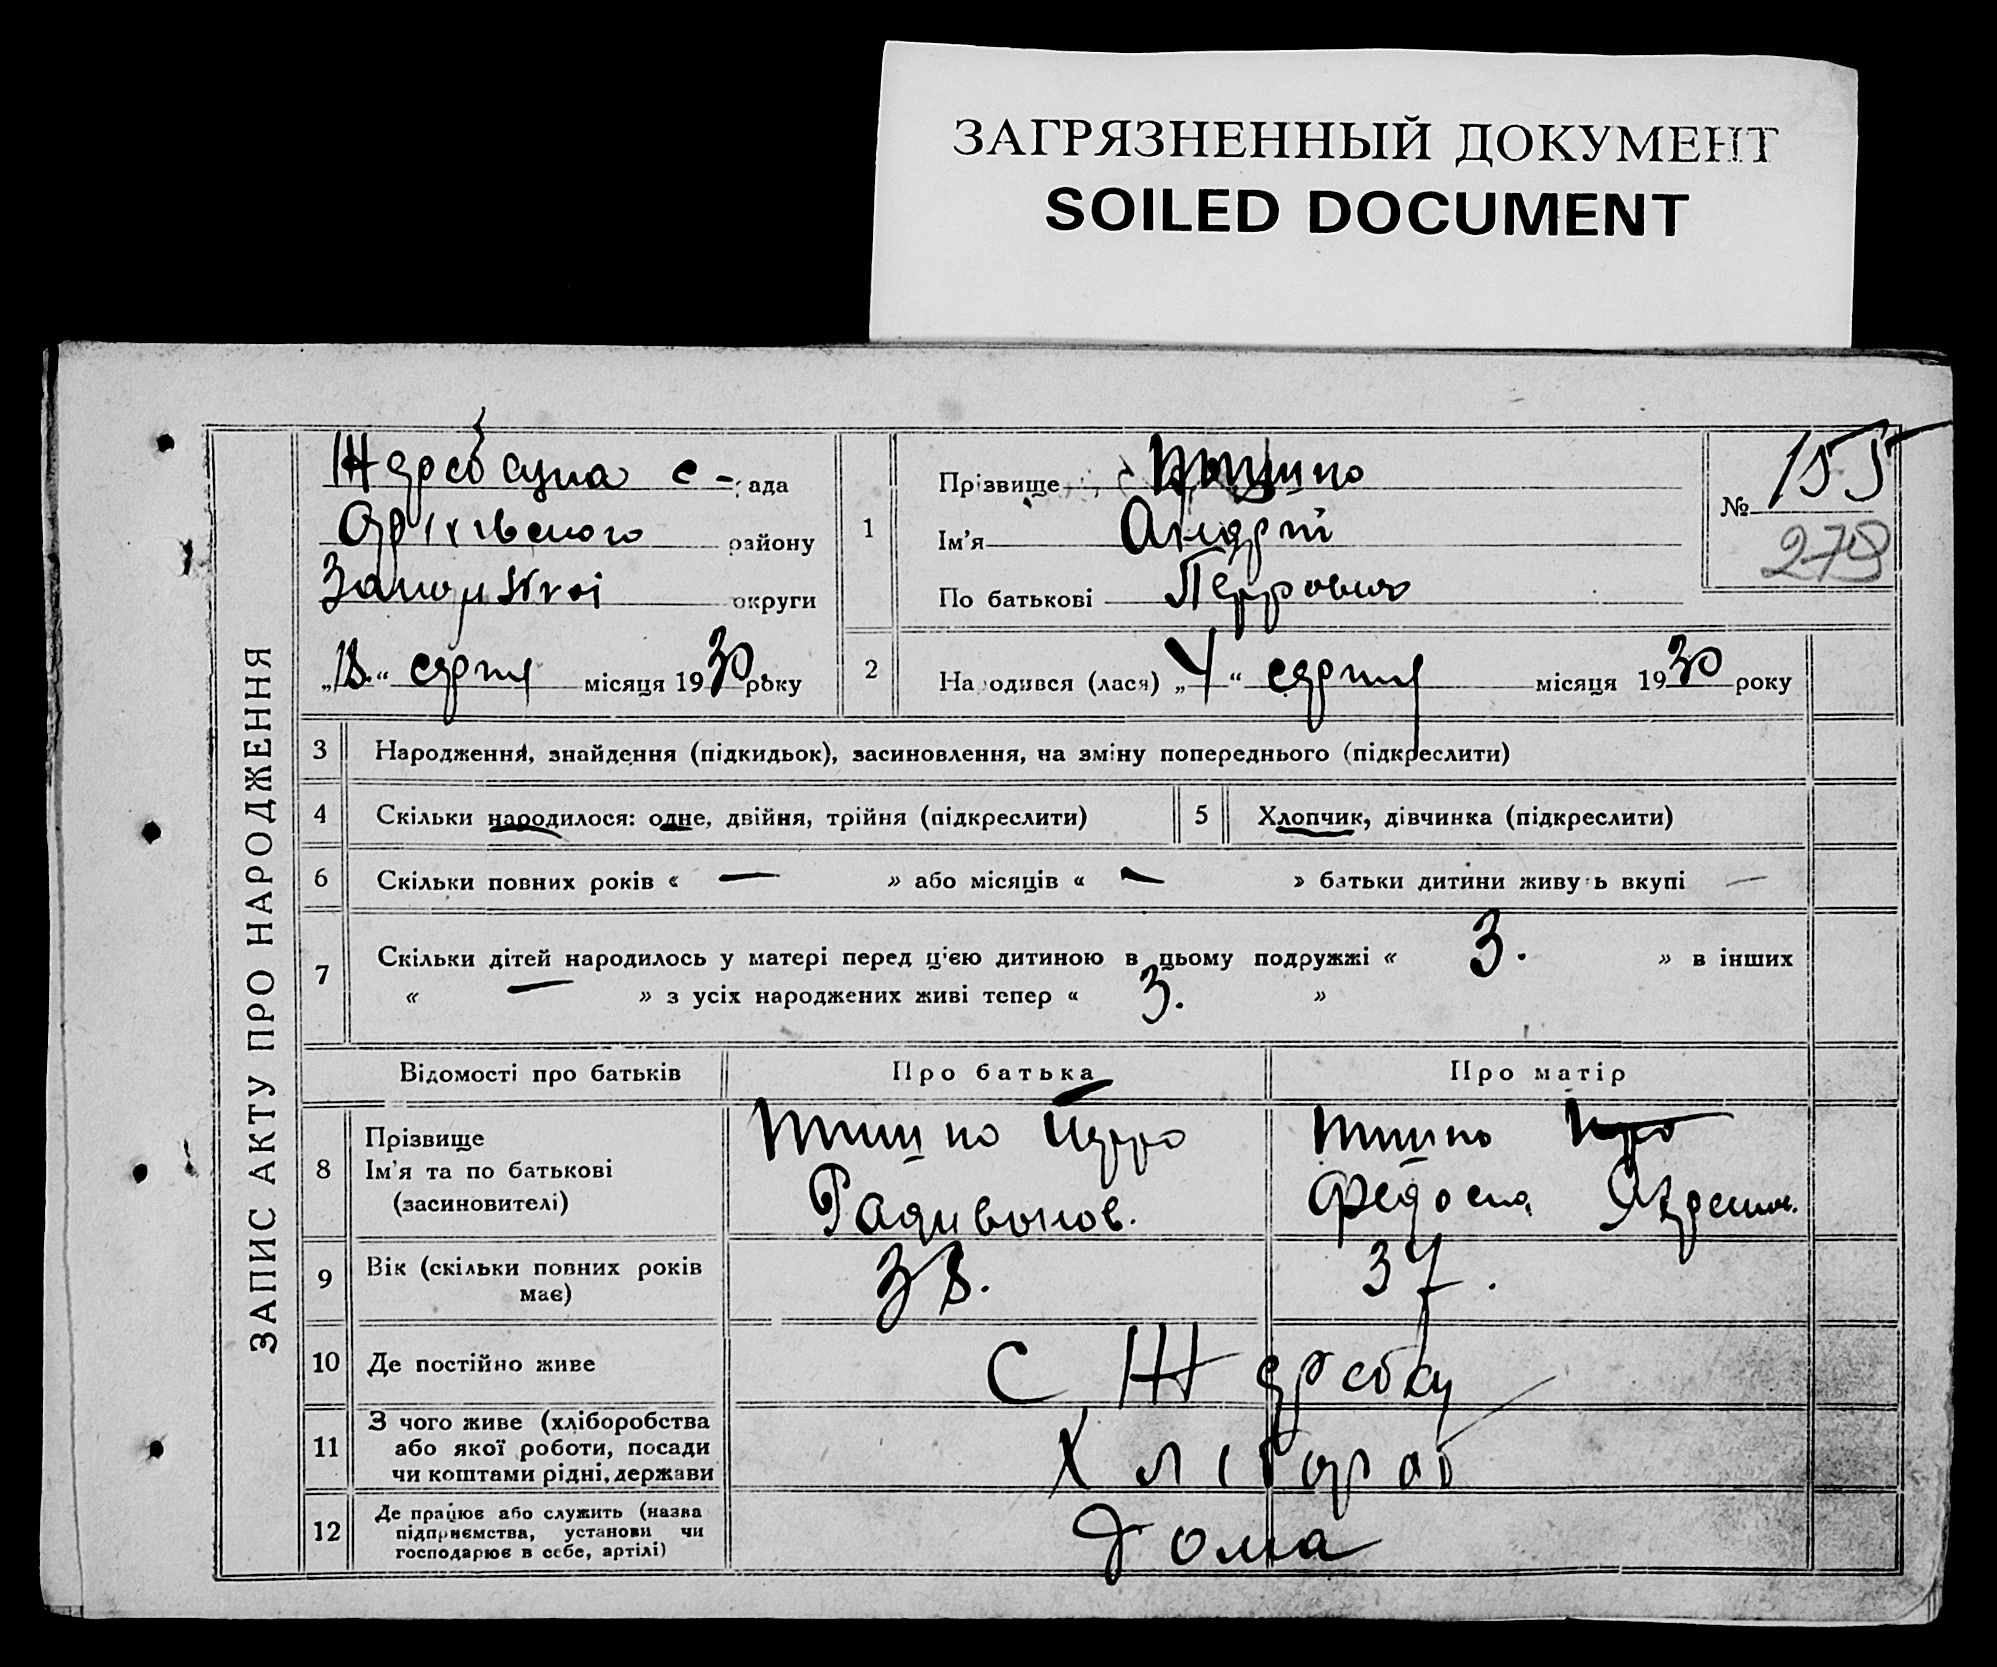 ЗАГРЯЗНЕННЫЙ ДОКУМЕНТ
SOILED DOCUMENT
ЗАПИС АКТУ ПРО НАРОДЖЕННЯ
с - ада
Оріхівського району
округи
„18.“ серпня місяця 1930 року
1
Прізвище
Ім'я Андрій
По батькові Петрович
№ 155
278
2 На одився (лася) „4“ серпня місяця 1930 року
3 Народження, знайдення (підкидьок), засиновлення, на зміну попереднього (підкреслити)
4 Скільки народилося: одне, двійня, трійня (підкреслити)
5 Хлопчик, дівчинка (підкреслити)
6 Скільки повних років « — » або місяців « — » батьки дитини живу ь вкупі —
7 Скільки дітей народилось у матері перед ц'єю дитиною в цьому подружжі « 3. » в інших
« — » з усіх народжених живі тепер « 3. »
Відомості про батьків Про батька Про матір
8 Прізвище
Ім'я та по батькові
(засиновителі)
Тишко Петро
Радивонов.
Тишко
Федосия
9 Вік (скільки повних років
має)
38. 37.
10 Де постійно живе
с Жеребку
11 З чого живе (хліборобства
або якої роботи, посади
чи коштами рідні, держави
Хлібороб
12 Де працює або служить (назва
підприємства, установи чи
господарює в себе, артілі)
Дома